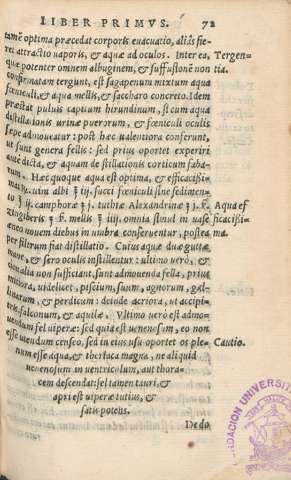 LIBER PRIMVS. 72
tamẽ optima præcedat corporis euacuatio, aliâs fie-
rei attractio naporis, & aquæ ad oculos. Inter ea, Tergen-
que potenter omnem albuginem, & suffusionẽ non tia.
confirmatam tergunt, est sagapenum mixtum aqua
fœniculi, aqua mellis, & saccharo concreto. Idem
præstat puluis captium hirundinum, si cum aqua
distillationis urinæ puerorum, & fœniculi oculis
sepe admoueatur: post hæc ualentiora conferunt,
ut sunt genera fellis: sed prius oportet experiri
aquã dicta, & aquam destillationis corticum faba-
rum. Hæc quoque aqua est optima, & efficacissi-
ma: uini albi ℥ iij. succi fœniculi sine sedimen-
to ℥ iij. camphoræ ʒ j. tuthiæ Alexandrinæ ʒ j. ß. Aqua ef
Zingiberis ʒ ß. mellis ℥ iiij. omnia simul in uase ficacissi-
æneo nouem diebus in umbra conseruentur, postea ma.
per filtrum fiat distillatio. Cuius aquæ duæ guttæ,
mane, & sero oculis instillentur: ultimo uerò, &
alia non sufficiant, sunt admouenda fella, prius
mitiora, uidelicet, piscium, suum, agnorum, gal-
linarum, & perdicum: deinde acriora, ut accipi-
tris, falconum, & aquilæ. Vltimo uerò est admo-
uendum fel uiperæ: sed quia est uenenosum, eo non
esse utendum censeo, sed in eius usu oportet os ple- Cautio.
num esse aqua, & theriaca magna, ne aliquid
uenenosum in uentriculum, aut thora
cem descendat: fel tamen tauri, &
apri est uiperæ tutius, &
satis potens.
De do
FUNDACION UNIVERSI